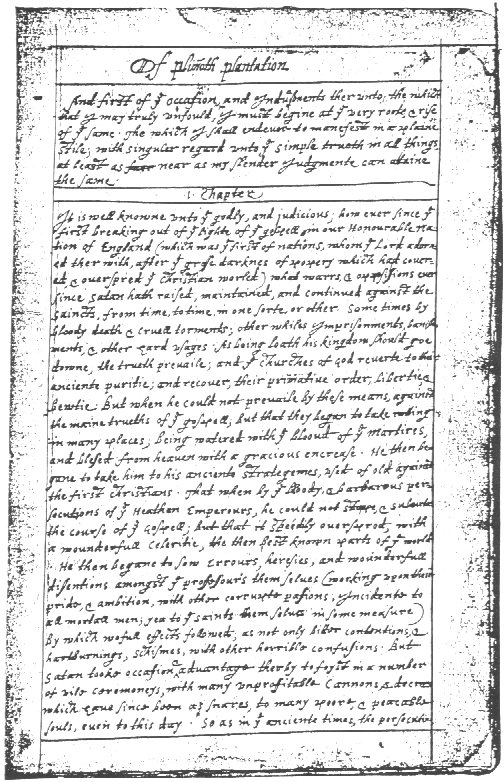 Of plimoth plantation
And first of yͤ occasion, and Indusments ther unto; the which
that I may truly unfould, I must begine at yͤ very roote & rise
of yͤ same. The which I shall endevor to manefest in a plaine
stile; with singular regard unto yͤ simple trueth in all things,
at least as farr near as my slender Judgmente can attaine
the same.
1. Chapter
It is well knowne unto yͤ godly, and judicious; how ever since yͤ
first breaking out of yͤ lighte of yͤ gospell, in our Honourable na
tion of England (which was yͤ first of nations, whom yͤ Lord adorn
ed ther with, after yͤ grose darknes of popery which had cover
ed & overspred yͤ Christian world) what warrs, & oppissions ever
since Satan hath raised, maintained, and continued against the
Saincts, from time, to time, in one sorte, or other. Some times by
bloody death & cruell torments; other whiles Imprisonments, banish
ments, & other hard usages. As being loath his kingdom should goe
downe, the trueth prevaile; and yͤ Churches of God reverte to their
anciente puritie; and recover, their primative order, libertie &
bewtie. But when he could not prevaile by these means, against
the maine trueths of yͤ gospell, but that they began to take rooting
in many places; being watered with yͤ bloud of yͤ martires,
and blesed from heaven with a gracious encrease. He then be
gane to take him to his anciente strategemes, used of old against
the first Christians. That when by yͤ bloody, & barbarous per
secutions of yͤ Heathen Emperours, he could not stoppe, & subverte
the course of yͤ Gospell; but that it speedily overspred, with
a wounderfull celeritie, the then best known parts of yͤ world
. He then begane to sow Errours, heresies, and wounderfull
disentions amongst yͤ professours them selves (working upon their
pride, & ambition, with other corrupte passions, Incidente to
all mortall men; yea to yͤ saints them selves in some measure)
By which wofull effects followed; as not only bitter contentions, &
hartburnings, schismes, with other horrible confusions. But
Satan tooke occasion & advantage therby to foyst in a number
of vile ceremoneys, with many unprofitable Cannons, & decrees
which have since been as snares, to many poore, & peaceable
souls, even to this day. So as in yͤ anciente times, the persecutio